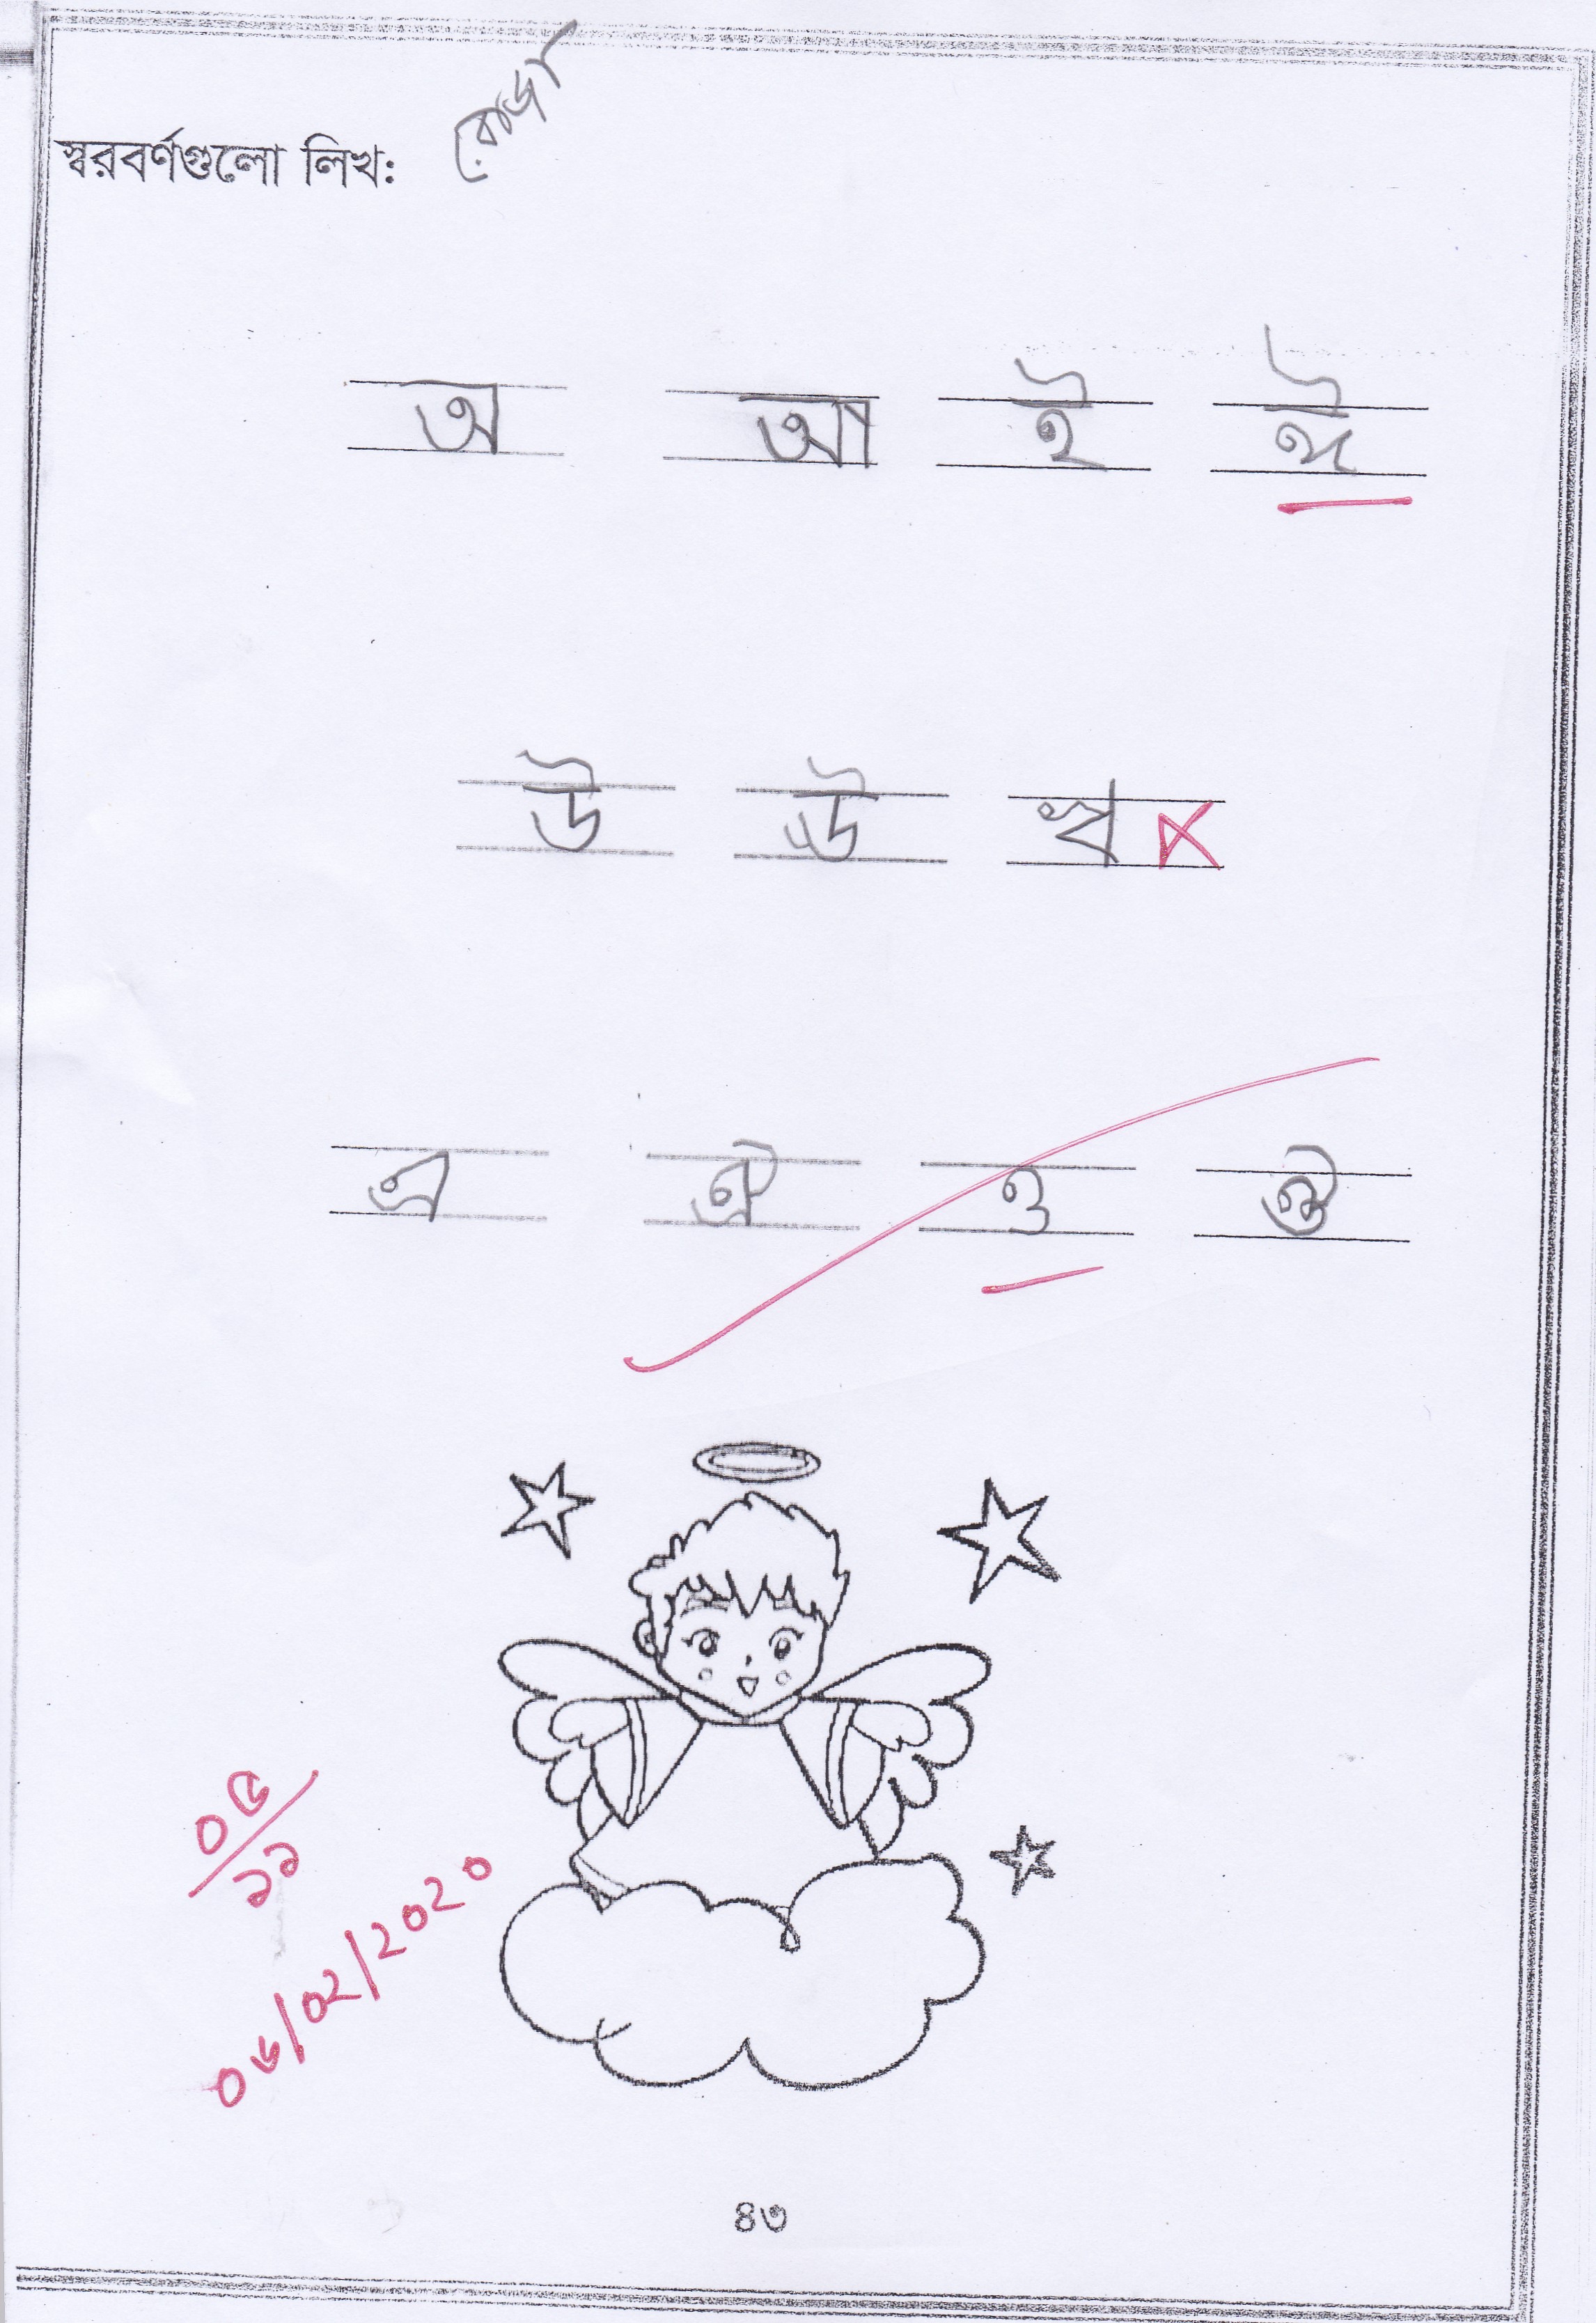 স্বরবর্ণগুলো লিখ:
অ আ ই ঈ
উ ঊ ঋ
এ ঐ ও ঔ
০৫/১১
০৬/০২/২০২০
৪৩